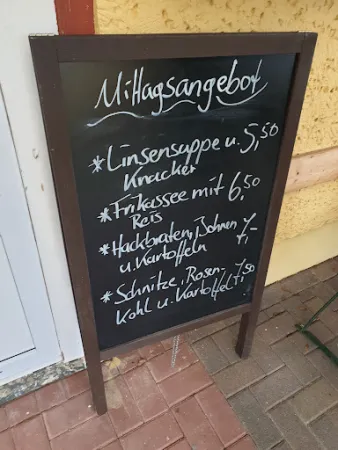 Mittagsangebot
*Linsensuppe u. 5,50
Knacker
*Frikassee mit 6,50
Reis
*Hackbraten, Bohnen 7,-
u. Kartoffeln
*Schnitze, Rosen- 7,50
Kohl u. Kartoffeln